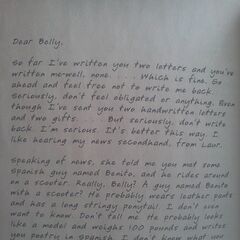 Dear Belly,
So far I've written you two letters and you've
written me-well, none. . . . . Which is fine. So
ahead and feel free not to write me back.
Seriously, don't feel obligated or anything. Even
though I've sent you two handwritten letters
and two gifts. . . . . But seriously, don't write
back. I'm serious. It's better this way. I
like hearing my news secondhand, from Laur.
Speaking of news, she told me you met some
Spanish guy named Benito, and he rides around
on a scooter. Really, Belly? A guy named Benito
with a scooter? He probably wears leather pants
and has a long stringy ponytail. I don't even
want to know. Don't tell me. He probably looks
like a model and weighs 100 pounds and writes
you poetry in Spanish. I don't know what you